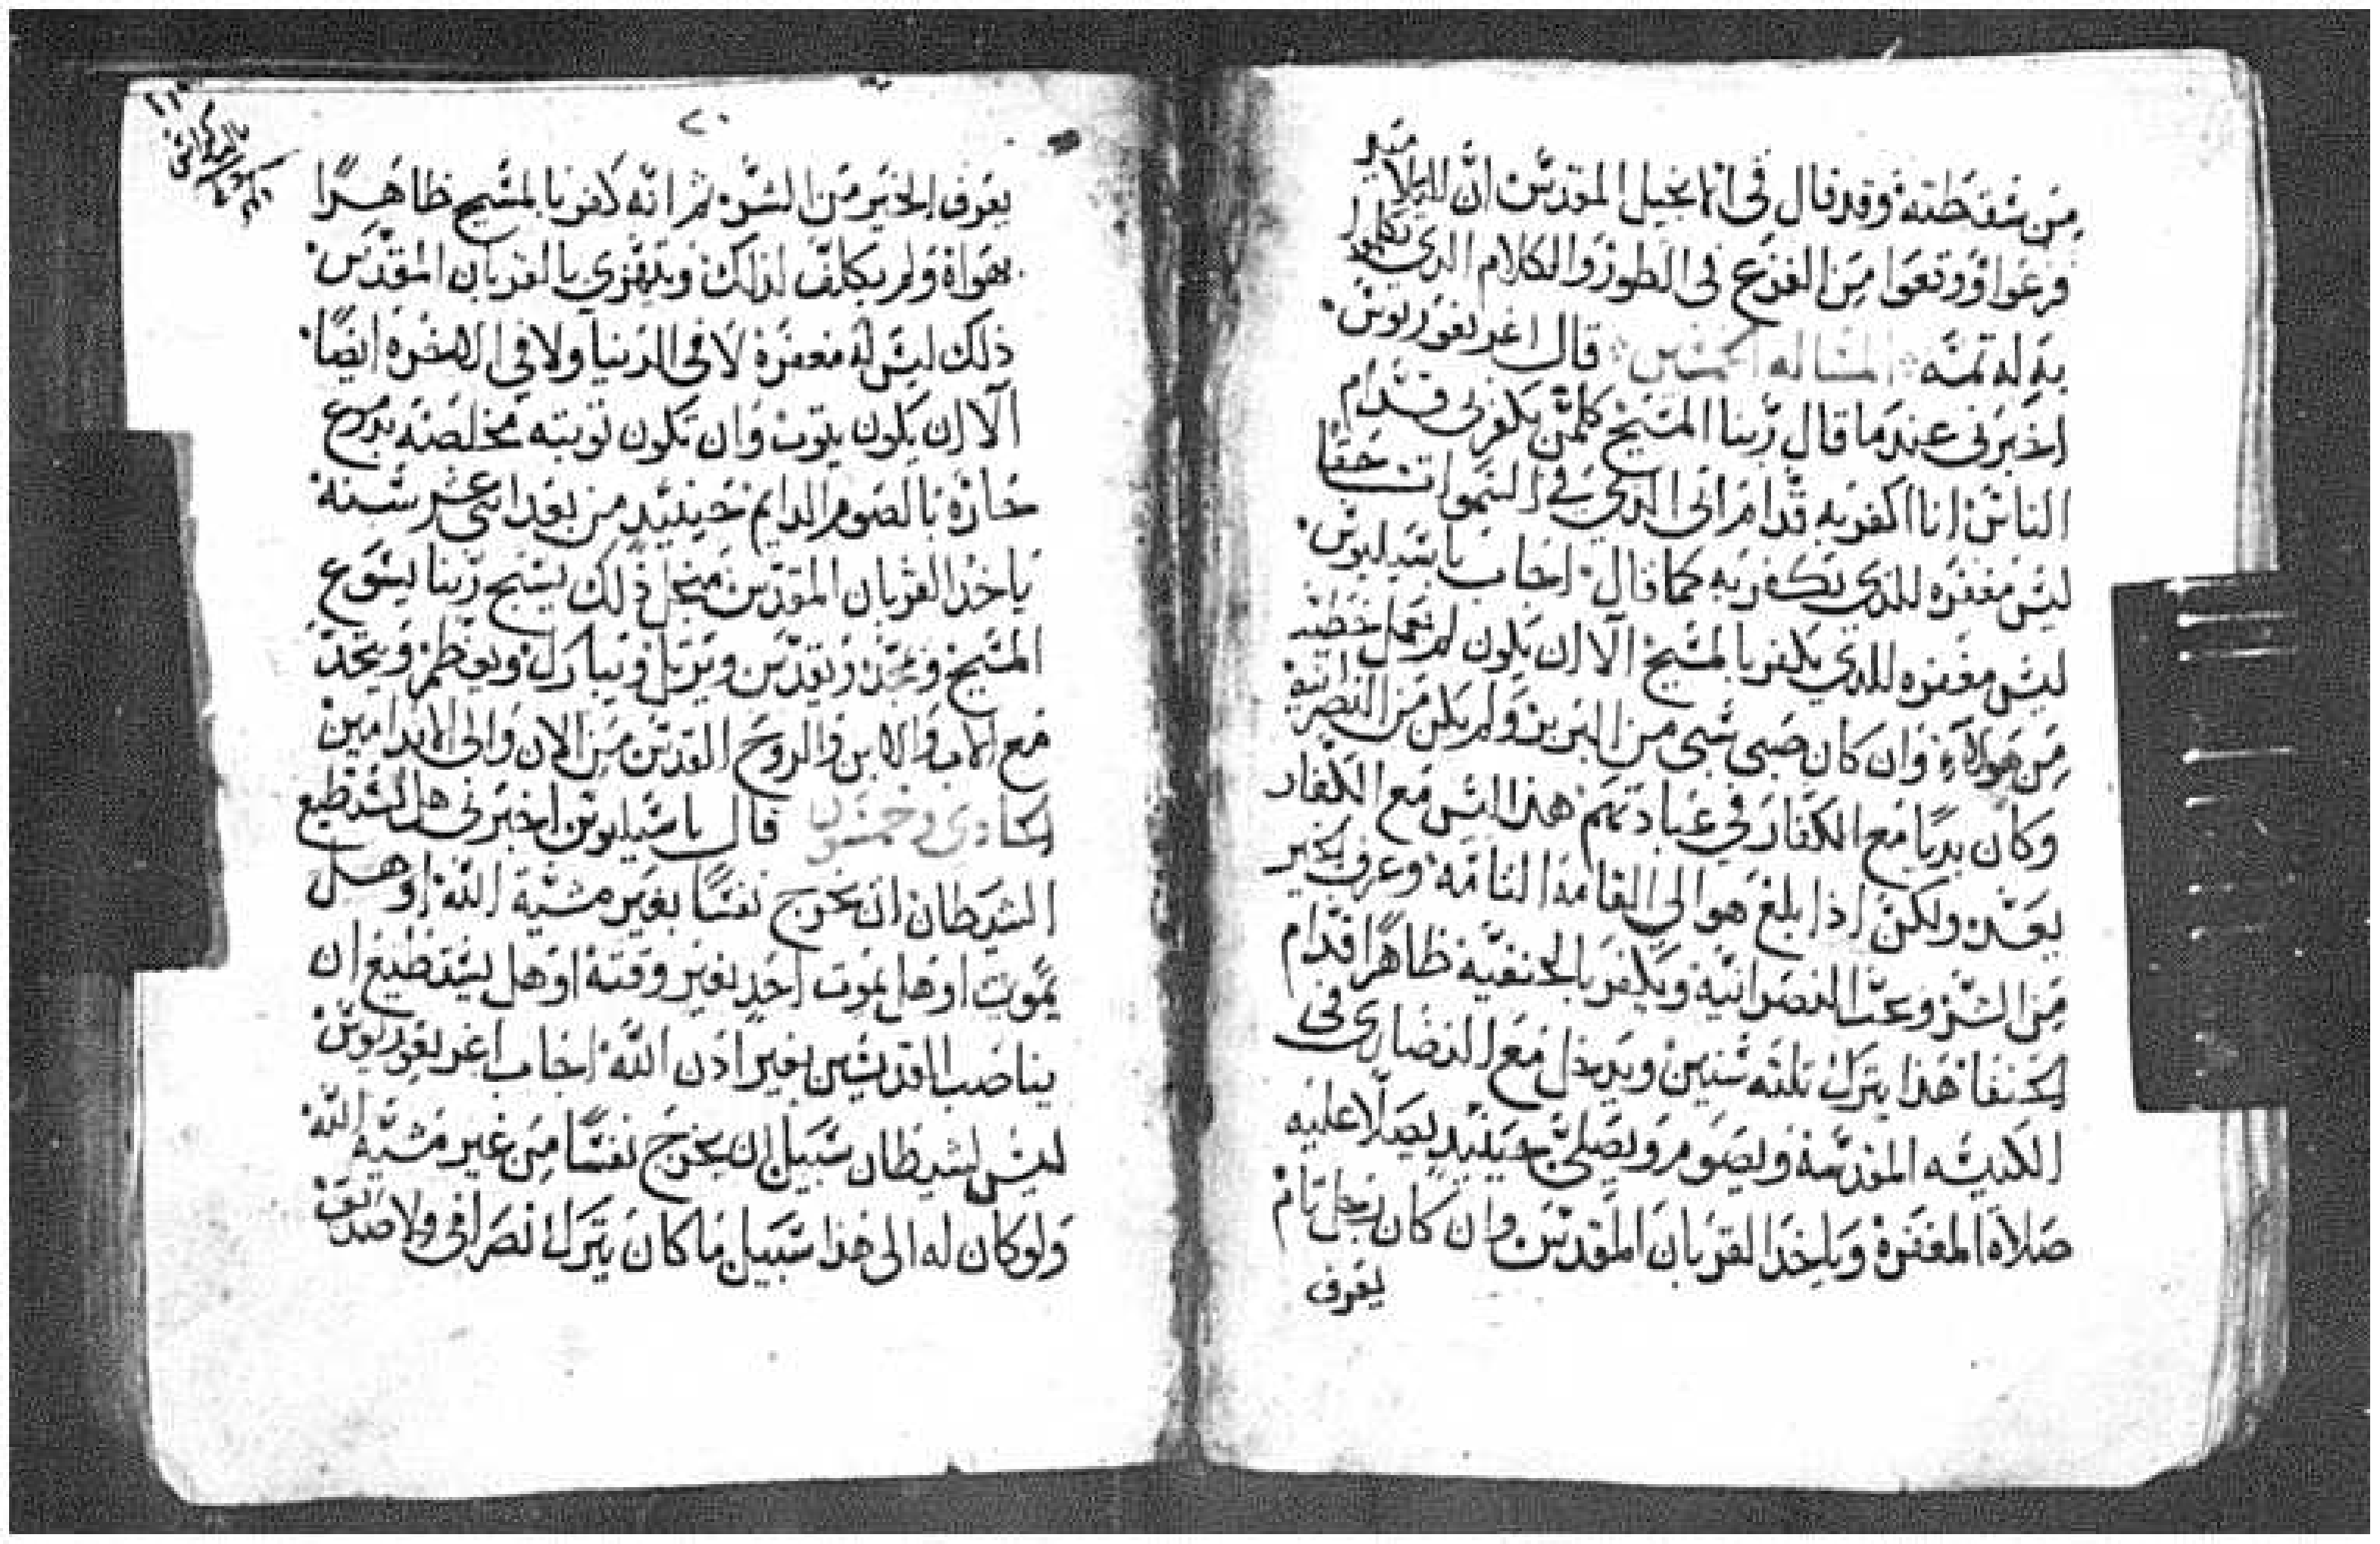 من سقطته وقد قال في الانجيل المقدس ان التلاميد
فزعوا ووقعوا من الفزع في الطور والكلام الدي تكلموا
به له تمنه المساله الخمسين قال اغريغوريوس
اخبرني عندما قال ربنا المسيح كلمن يكفر بي قدام
الناس انا اكفر به قدام ابي الدي في السموات حقا
ليس مغفره للدي يكفر به كما قال اجاب باسيليوس
ليس مغفره للدي يكفر بالمسيح الا ان يكون لم يعمل خطيه
من هولاء وان كان صبي سبي من البربر ولم يكن من النصرانية
وكان بربا مع الكفار في عبادتهم هذا ليس مع الكفار
يعد ولكن اذا بلغ هو الى القامة التامة وعرف الخير
من الشر وعب النصرانية ويكفر بالحنفية ظاهرا قدام
الحنفا هذا يترك تلته سنين ويدخل مع النصارى في
الكنيسه المقدسة ويصوم ويصلي حينيد يصلا عليه
صلاة المغفرة وياخد القربان المقدس وان كان رجل تام
يعرف
٢٠
يعرف الخير من الشر ثم انه كفر بالمسيح ظاهرا
بهواه ولم يكلف لذلك ويتهزى بالقربان المقدس
ذلك ليس له مغفرة لا في الدنيا ولا في الاخرة ايضا
الا ان يكون يتوب وان تكون توبته مخلصة بدموع
حارة بالصوم الدايم حينيد من بعد اثني عشر سنة
ياخد القربان المقدس من اجل ذلك يسبح ربنا يسوع
المسيح ويمجد ويقدس ويرتل ويبارك ويعظم ويتحد
مع الاب والابن والروح القدس من الان والى الابد امين
الحادي وخمسون قال باسيليوس اخبرني هل يستطيع
الشيطان ان يخرج نفسا بغير مشية الله او هل
يموت او هل يموت احد بغير وقته او هل يستطيع ان
يناصب القديسين بغير ادن الله اجاب اغريغوريوس
ليس لشيطان سبيل ان يخرج نفسا من غير مشية الله
ولو كان له الى هذا سبيل ما كان يترك نصراني ولا صديق